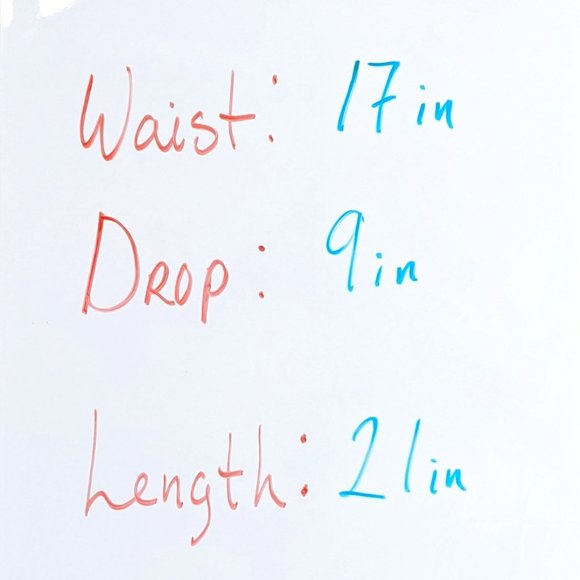 Waist: 17in
Drop: 9in
Length: 21in